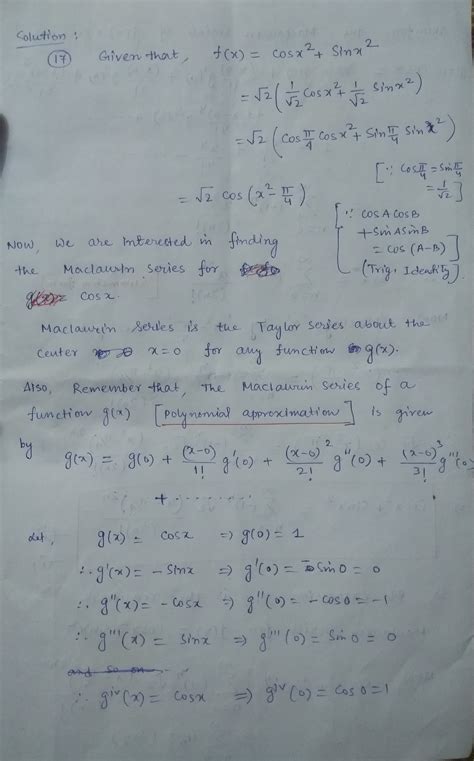 Solution :
(17) Given that, f(x) = cosx² + Sinx²
= √2 ( 1/√2 Cosx² + 1/√2 Sinx² )
= √2 ( Cos π/4 Cosx² + Sin π/4 Sin x² )
[∵ Cos π/4 = Sin π/4 = 1/√2 ]
= √2 cos (x² - π/4)
[∵ cosA cosB
+ SinA SinB
= cos (A-B) ]
(Trig. Identity)
Now, We are Interested in finding
the Maclaurin Series for
g(x) = cosx.
Maclaurin Series is the Taylor series about the
center x=0 for any function g(x).
Also, Remember that, The Maclaurin Series of a
function g(x) [Polynomial approximation] is given
by g(x) = g(0) + (x-0)/1! g'(0) + (x-0)²/2! g''(0) + (x-0)³/3! g'''(0)
+ ........
Let, g(x) = cosx ⇒ g(0) = 1
∴ g'(x) = - Sinx ⇒ g'(0) = - Sin0 = 0
∴ g''(x) = - Cosx ⇒ g''(0) = - cos0 = -1
∴ g'''(x) = Sinx ⇒ g'''(0) = Sin0 = 0
and so on
∴ g^iv(x) = Cosx ⇒ g^iv(0) = cos0 = 1